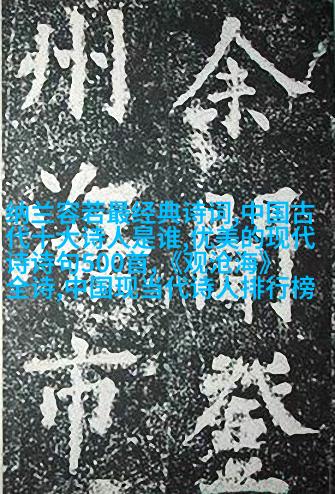 余聞登
州海市
纳兰容若最经典诗词,中国古
代十大诗人是谁,优美的现代
诗诗句500首,《观沧海》
全诗,中国现当代诗人排行榜